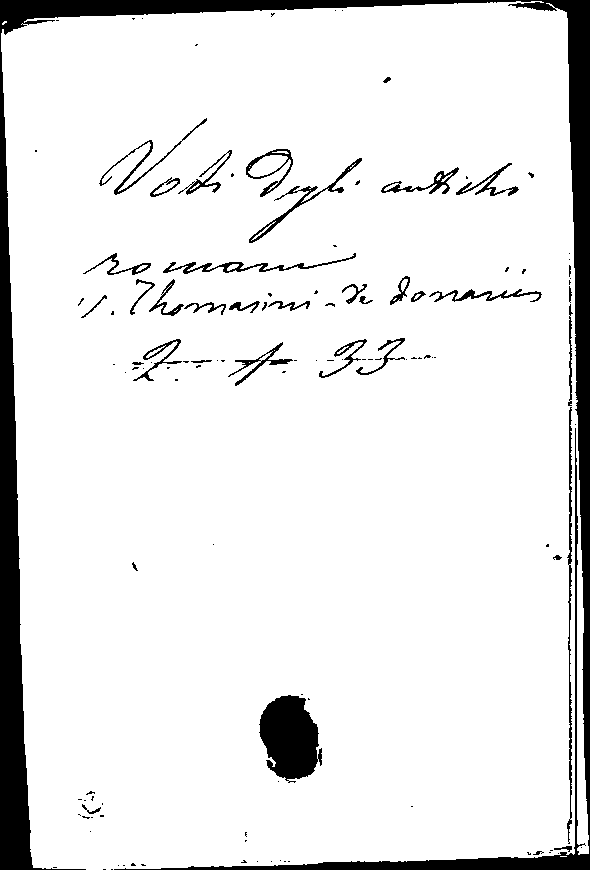 Voti degli antichi
romani
V. Thomasini - De donariis
2. 1. 33